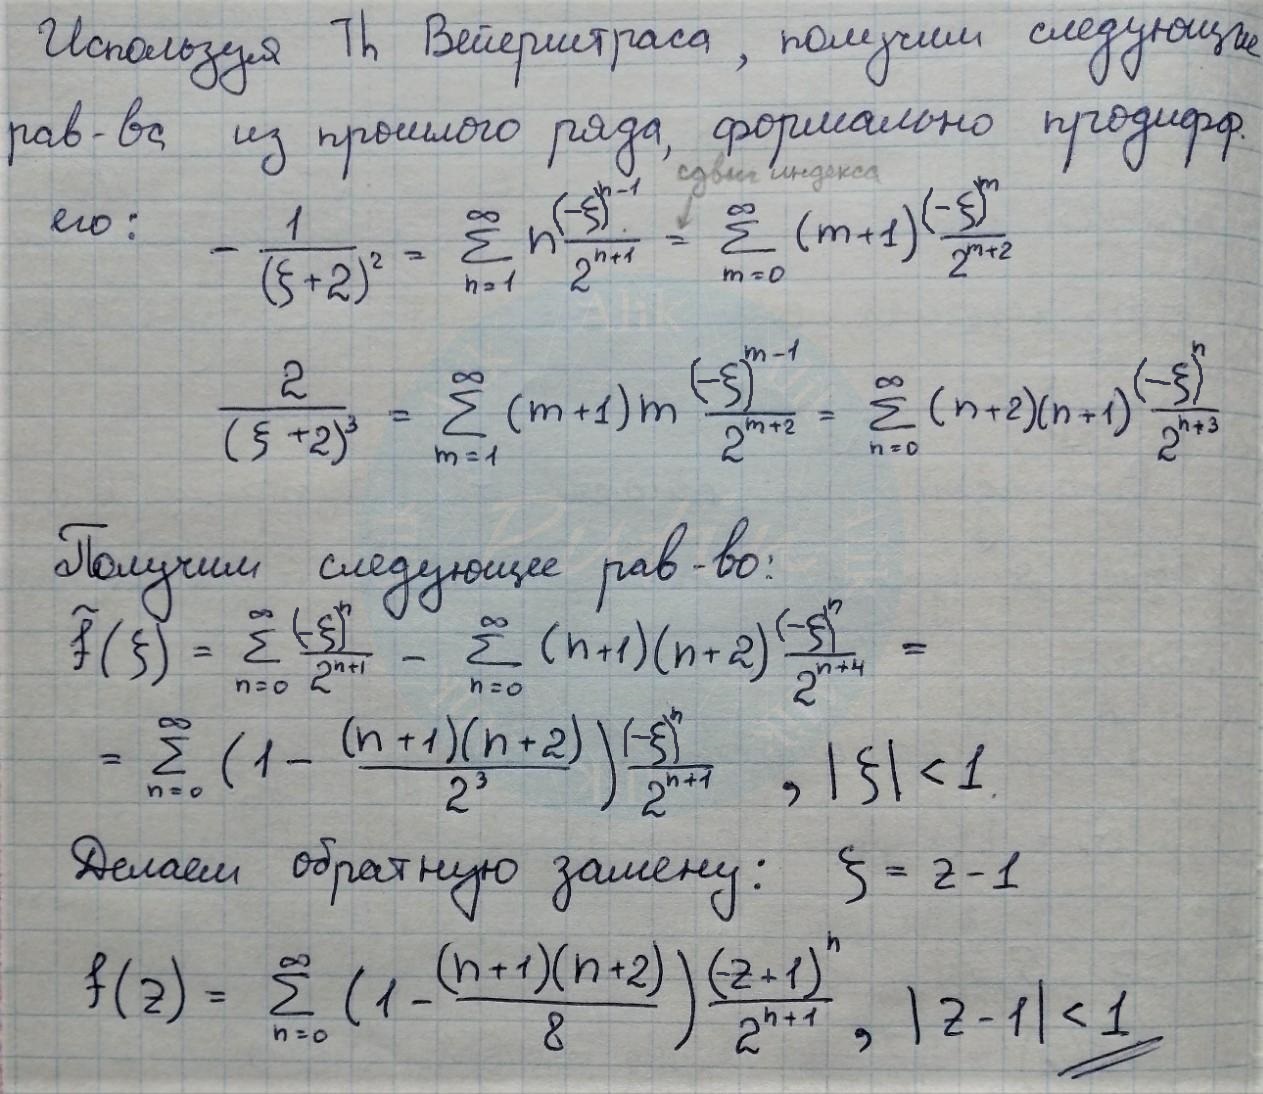 Используя Th Вейерштраса, получим следующие
рав-ва из прошлого ряда, формально продифф.
сдвиг индекса
его: - 1/(ξ+2)^2 = ∑_{n=1}^{∞} n (-ξ)^{n-1}/2^{n+1} = ∑_{m=0}^{∞} (m+1) (-ξ)^m/2^{m+2}
2/(ξ+2)^3 = ∑_{m=1}^{∞} (m+1)m (-ξ)^{m-1}/2^{m+2} = ∑_{n=0}^{∞} (n+2)(n+1) (-ξ)^n/2^{n+3}
Получим следующее рав-во:
f̃(ξ) = ∑_{n=0}^{∞} (-ξ)^n/2^{n+1} - ∑_{n=0}^{∞} (n+1)(n+2) (-ξ)^n/2^{n+4} =
= ∑_{n=0}^{∞} (1 - (n+1)(n+2)/2^3) (-ξ)^n/2^{n+1} , |ξ| < 1.
Делаем обратную замену: ξ = z-1
f(z) = ∑_{n=0}^{∞} (1 - (n+1)(n+2)/8) (-z+1)^n/2^{n+1} , |z-1| < 1
Alik